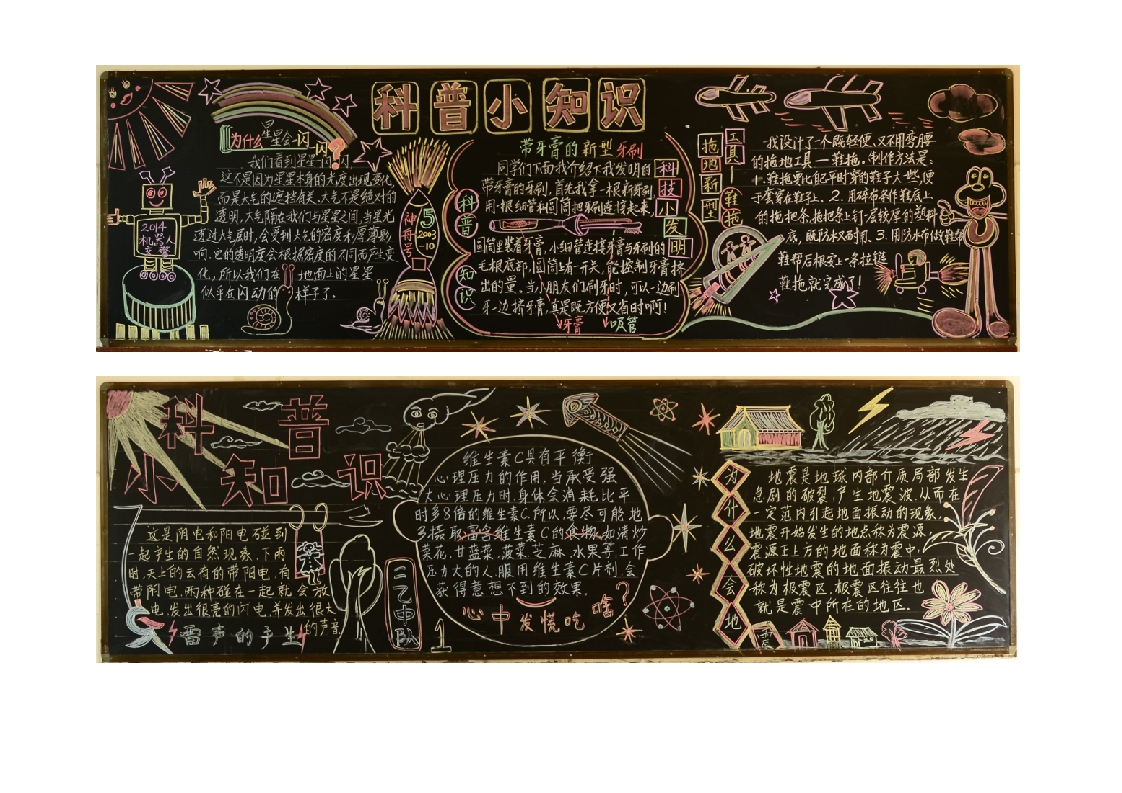 科普小知识
为什么星星会闪闪?
我们看到星星闪闪,
这不是因为星星本身的光度出现变化,
而是大气的遮挡有关。大气不是绝对的
透明,大气隔在我们与星星之间,当星光
透过大气层时,会受到大气的密度和厚薄影
响。它的透明度会根据密度的不同而产生变
化。所以我们在地面上的星星
似乎在闪动的样子了。
2014
机器人
神舟5号
2003
-10
科普知识
带牙膏的新型牙刷
同学们下面我介绍下我发明的
带牙膏的牙刷,首先我拿一根新牙刷,
用一根细管和圆筒把牙刷连接起来,
圆管里装着牙膏,小细管连接牙膏与牙刷的
毛根底部,圆筒上有一开关,能控制牙膏挤
出的量。当小朋友们刷牙时,可以一边刷
牙一边挤牙膏,真是既方便又省时啊!
牙膏 吸管
科技小发明
拖鞋新型
工具—鞋拖
我设计了一个既轻便,又不用弯腰
的拖地工具—鞋拖。制作方法是:
1.鞋拖要比你平时穿的鞋子大些,便
于套穿在鞋子上。2.用碎布条作鞋底上
的拖把条,拖把条上钉一层较厚的塑料
底,既防水又耐用。3.用防水布做鞋帮
鞋帮后根安上一条拉链
鞋拖就完成了!
科普
小知识
这是阴电和阳电碰到
一起产生的自然现象。下雨
时,天上的云有的带阳电,有
带阴电,两种碰在一起就会放
电,发出很亮的闪电,并发出很大
的声音
雷声的产生
二乙中队
维生素C具有平衡
心理压力的作用。当承受强
大心理压力时,身体会消耗比平
时多8倍的维生素C。所以,要尽可能地
多摄取富含维生素C的食物,如清炒
菜花、甘蓝菜、菠菜、芝麻、水果等。工作
压力大的人,服用维生素C片剂,会
获得意想不到的效果。
心中发慌吃啥?
为什么会地震
地震是地球内部介质局部发生
急剧的破裂,产生地震波,从而在
一定范围内引起地面振动的现象。
地震开始发生的地点称为震源,
震源正上方的地面称为震中。
破坏性地震的地面振动最烈处
称为极震区,极震区往往也
就是震中所在的地区。